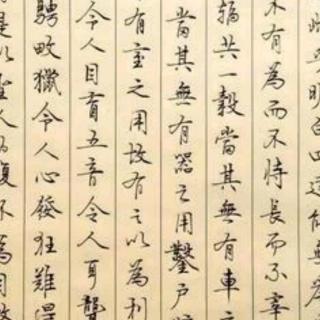 明白四達能無
不有為而不恃長而不宰
輻共一轂當其無有車之
當其無有器之用鑿戶牖
有室之用故有之以為利
令人目盲五音令人耳聾
騁畋獵令人心發狂難得
是以聖人為腹不為目故